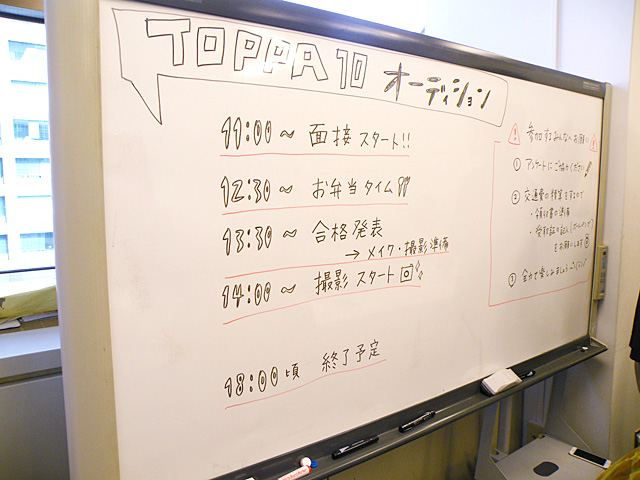 TOPPA10 オーディション
11:00 ~ 面接 スタート!!
12:30 ~ お弁当タイム
13:30 ~ 合格発表
→ メイク・撮影準備
14:00 ~ 撮影 スタート
18:00 頃 終了予定
参加するみんなへお願い
① アンケートにご協力ください
② 交通費の精算をするので
・領収書の準備
をお願いします
③ 全力で楽しみましょう